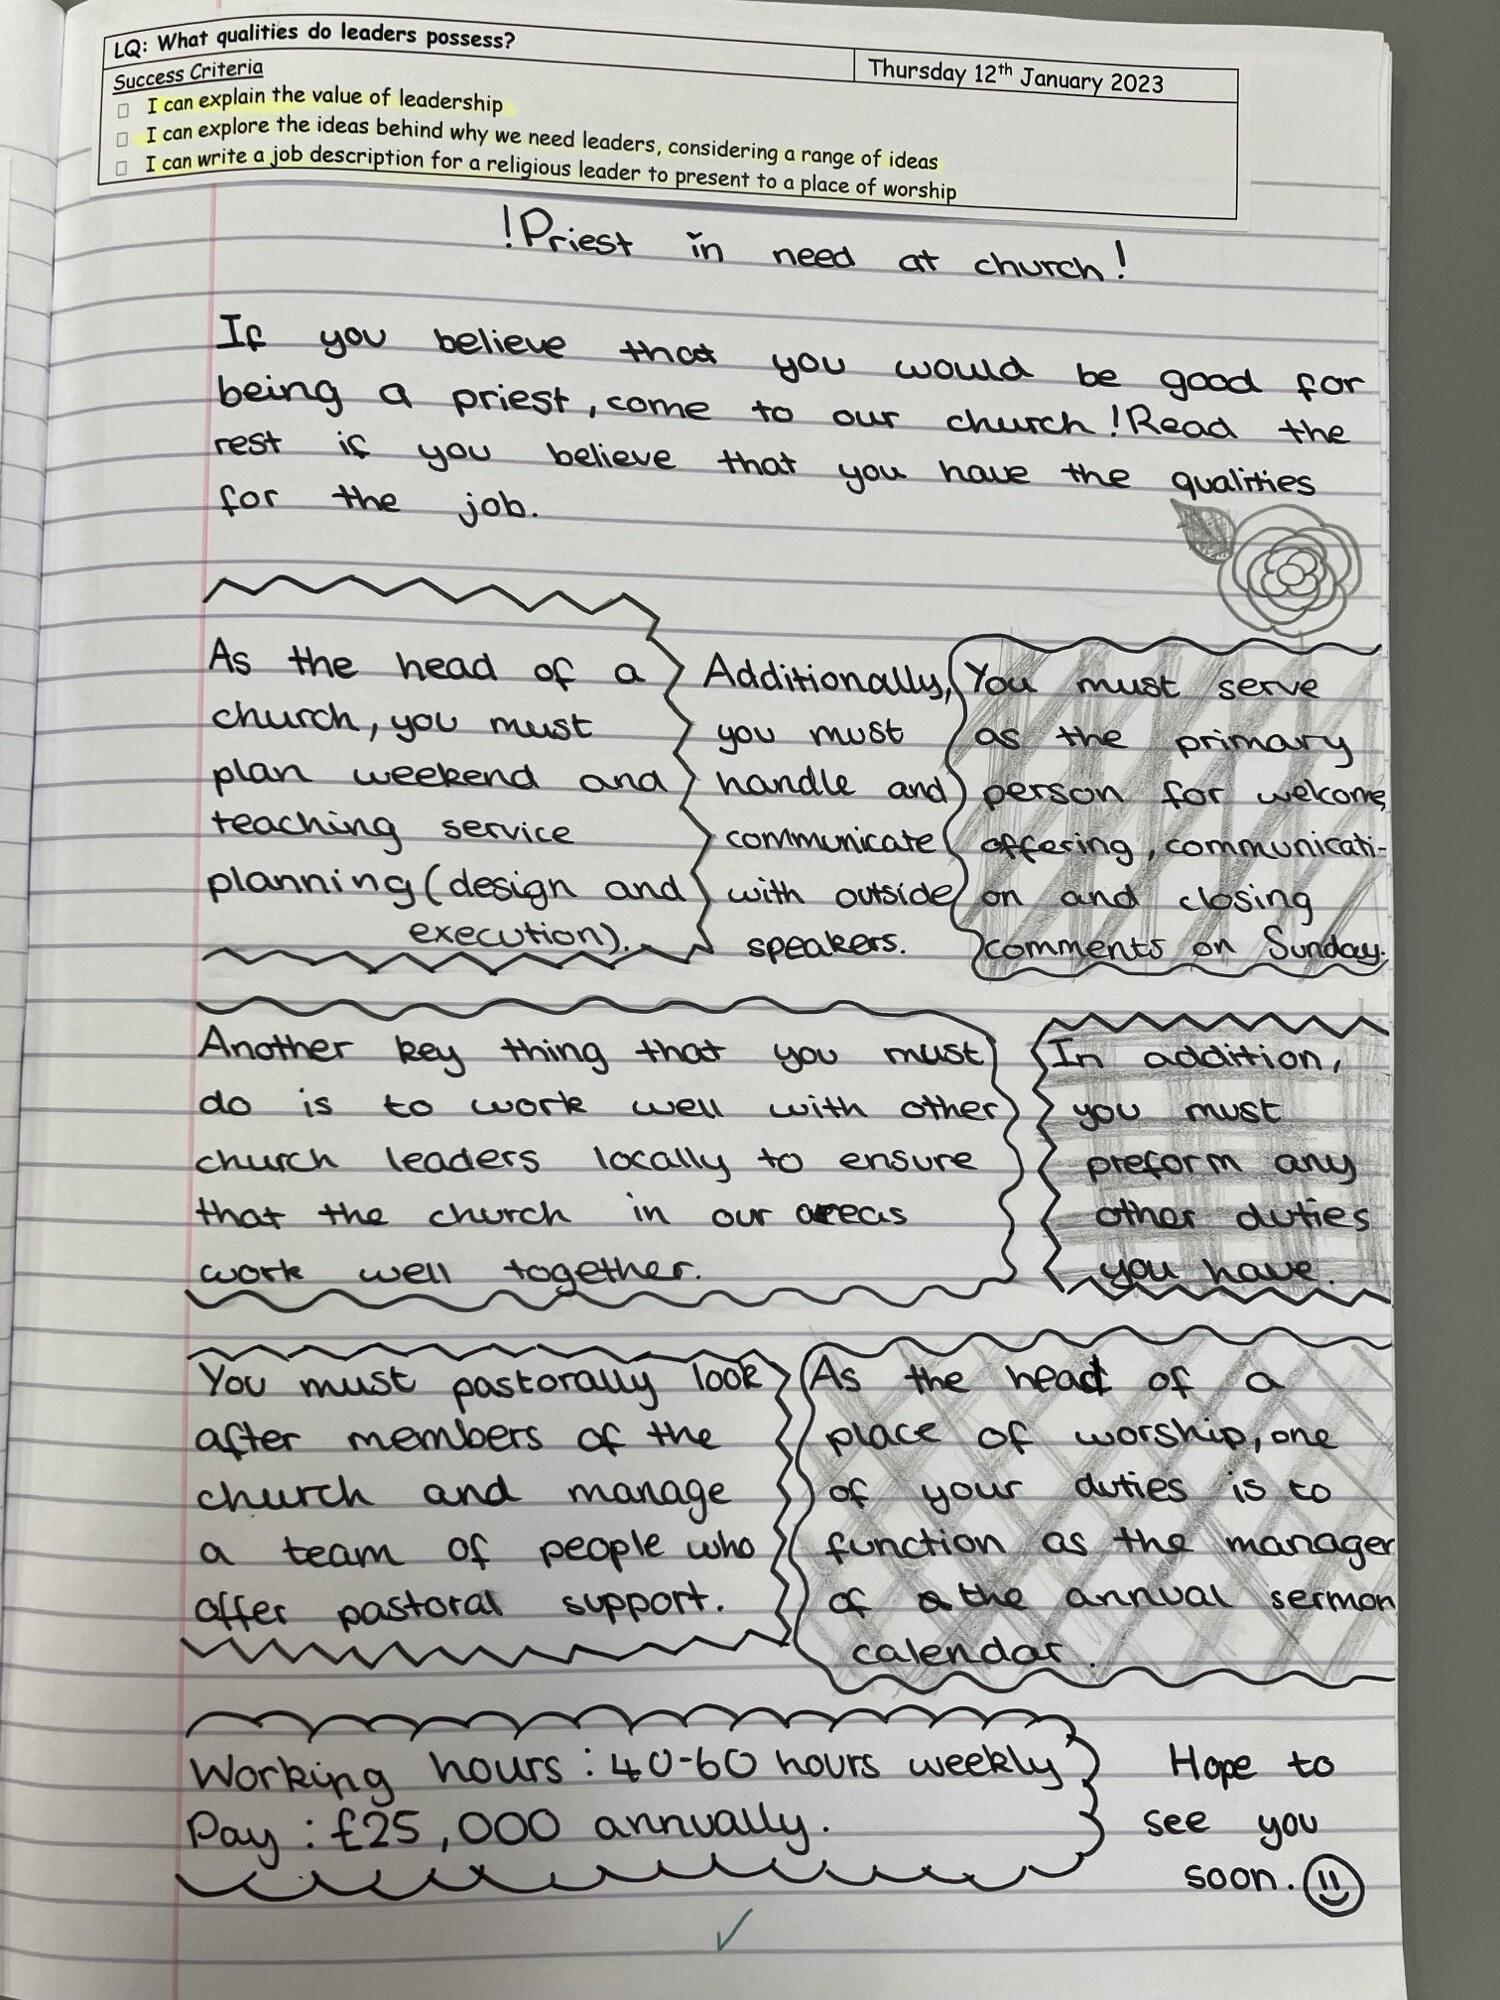 LQ: What qualities do leaders possess?
Thursday 12th January 2023
Success Criteria
I can explain the value of leadership
I can explore the ideas behind why we need leaders, considering a range of ideas
I can write a job description for a religious leader to present to a place of worship
!Priest in need at church!
If you believe that you would be good for
being a priest, come to our church! Read the
rest if you believe that you have the qualities
for the job.
As the head of a
church, you must
plan weekend and
teaching service
planning (design and
execution).
Additionally,
you must
handle and
communicate
with outside
speakers.
You must serve
as the primary
person for welcome,
offering, communicati-
on and closing
comments on Sunday.
Another key thing that you must
do is to work well with other
church leaders locally to ensure
that the church in our areas
work well together.
In addition,
you must
preform any
other duties
you have.
You must pastorally look
after members of the
church and manage
a team of people who
offer pastoral support.
As the head of a
place of worship, one
of your duties is to
function as the manager
of the annual sermon
calendar.
Working hours: 40-60 hours weekly
Pay: £25,000 annually.
Hope to
see you
soon.